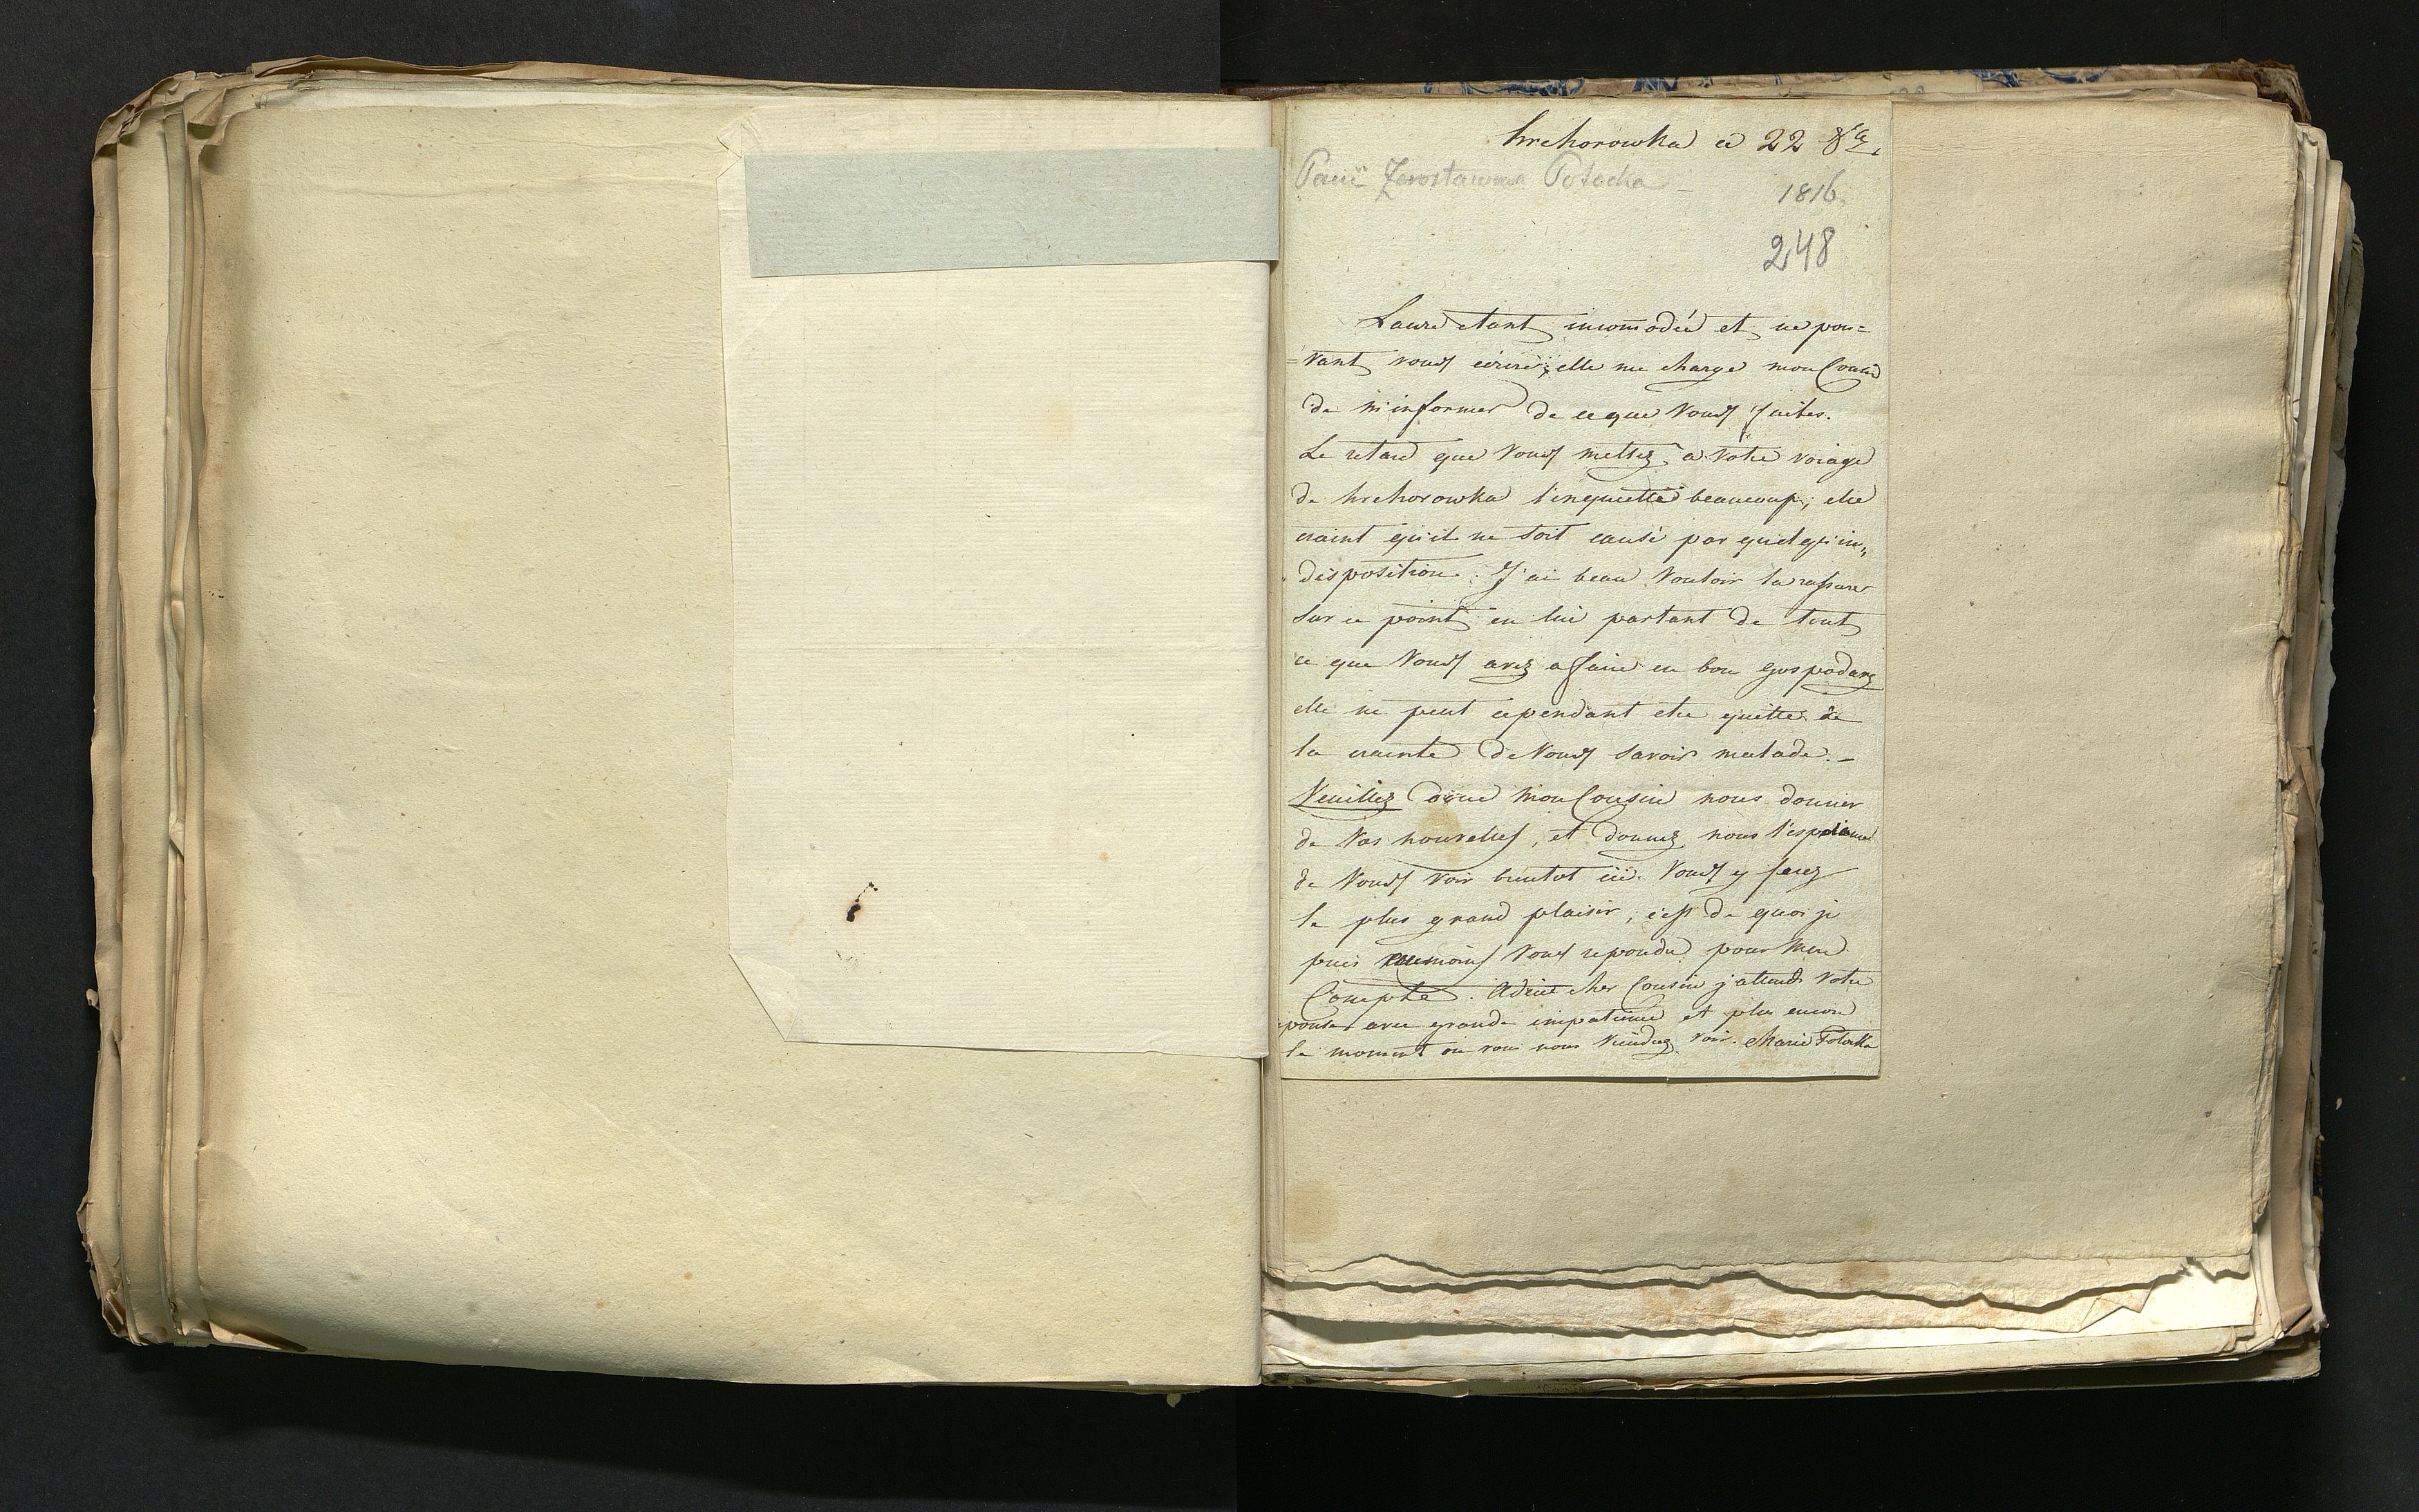 hrehorowka ce 22 8bre
Pani Jarosławowa Potocka
1816
248
Laure etant incomodée et ne pou=
=vant vous ecrire; elle me charge mon Cousin
de m'informer de ce que Vous faites.
Le retard que Vous mettez a votre voiage
de hrehorowka l'inquiette beaucoup; elle
craint qu'il ne soit causé par quelqu'in„
„disposition. J'ai beau Vouloir la rassurer
sur ce point en lui parlant de tout
ce que Vous avez a faire en bon gospodarz
elle ne peut cependant etre quitte de
la crainte de Vous savoir malade. –
Veuillez donc mon Cousin nous donner
de Vos nouvelles, et donnez nous l'esperance
de Vous voir bientot ici. Vous y ferez
le plus grand plaisir, c'est de quoi je
puis vous repondre pour mon
Compte. Adieu cher Cousin j'attends votre
eponse avec grande impatience et plus encore
le moment ou vous nous viendrez voir. Marie Potocka